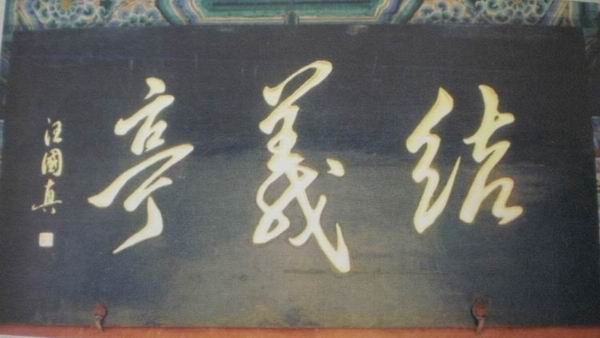 結義亭
汪國真